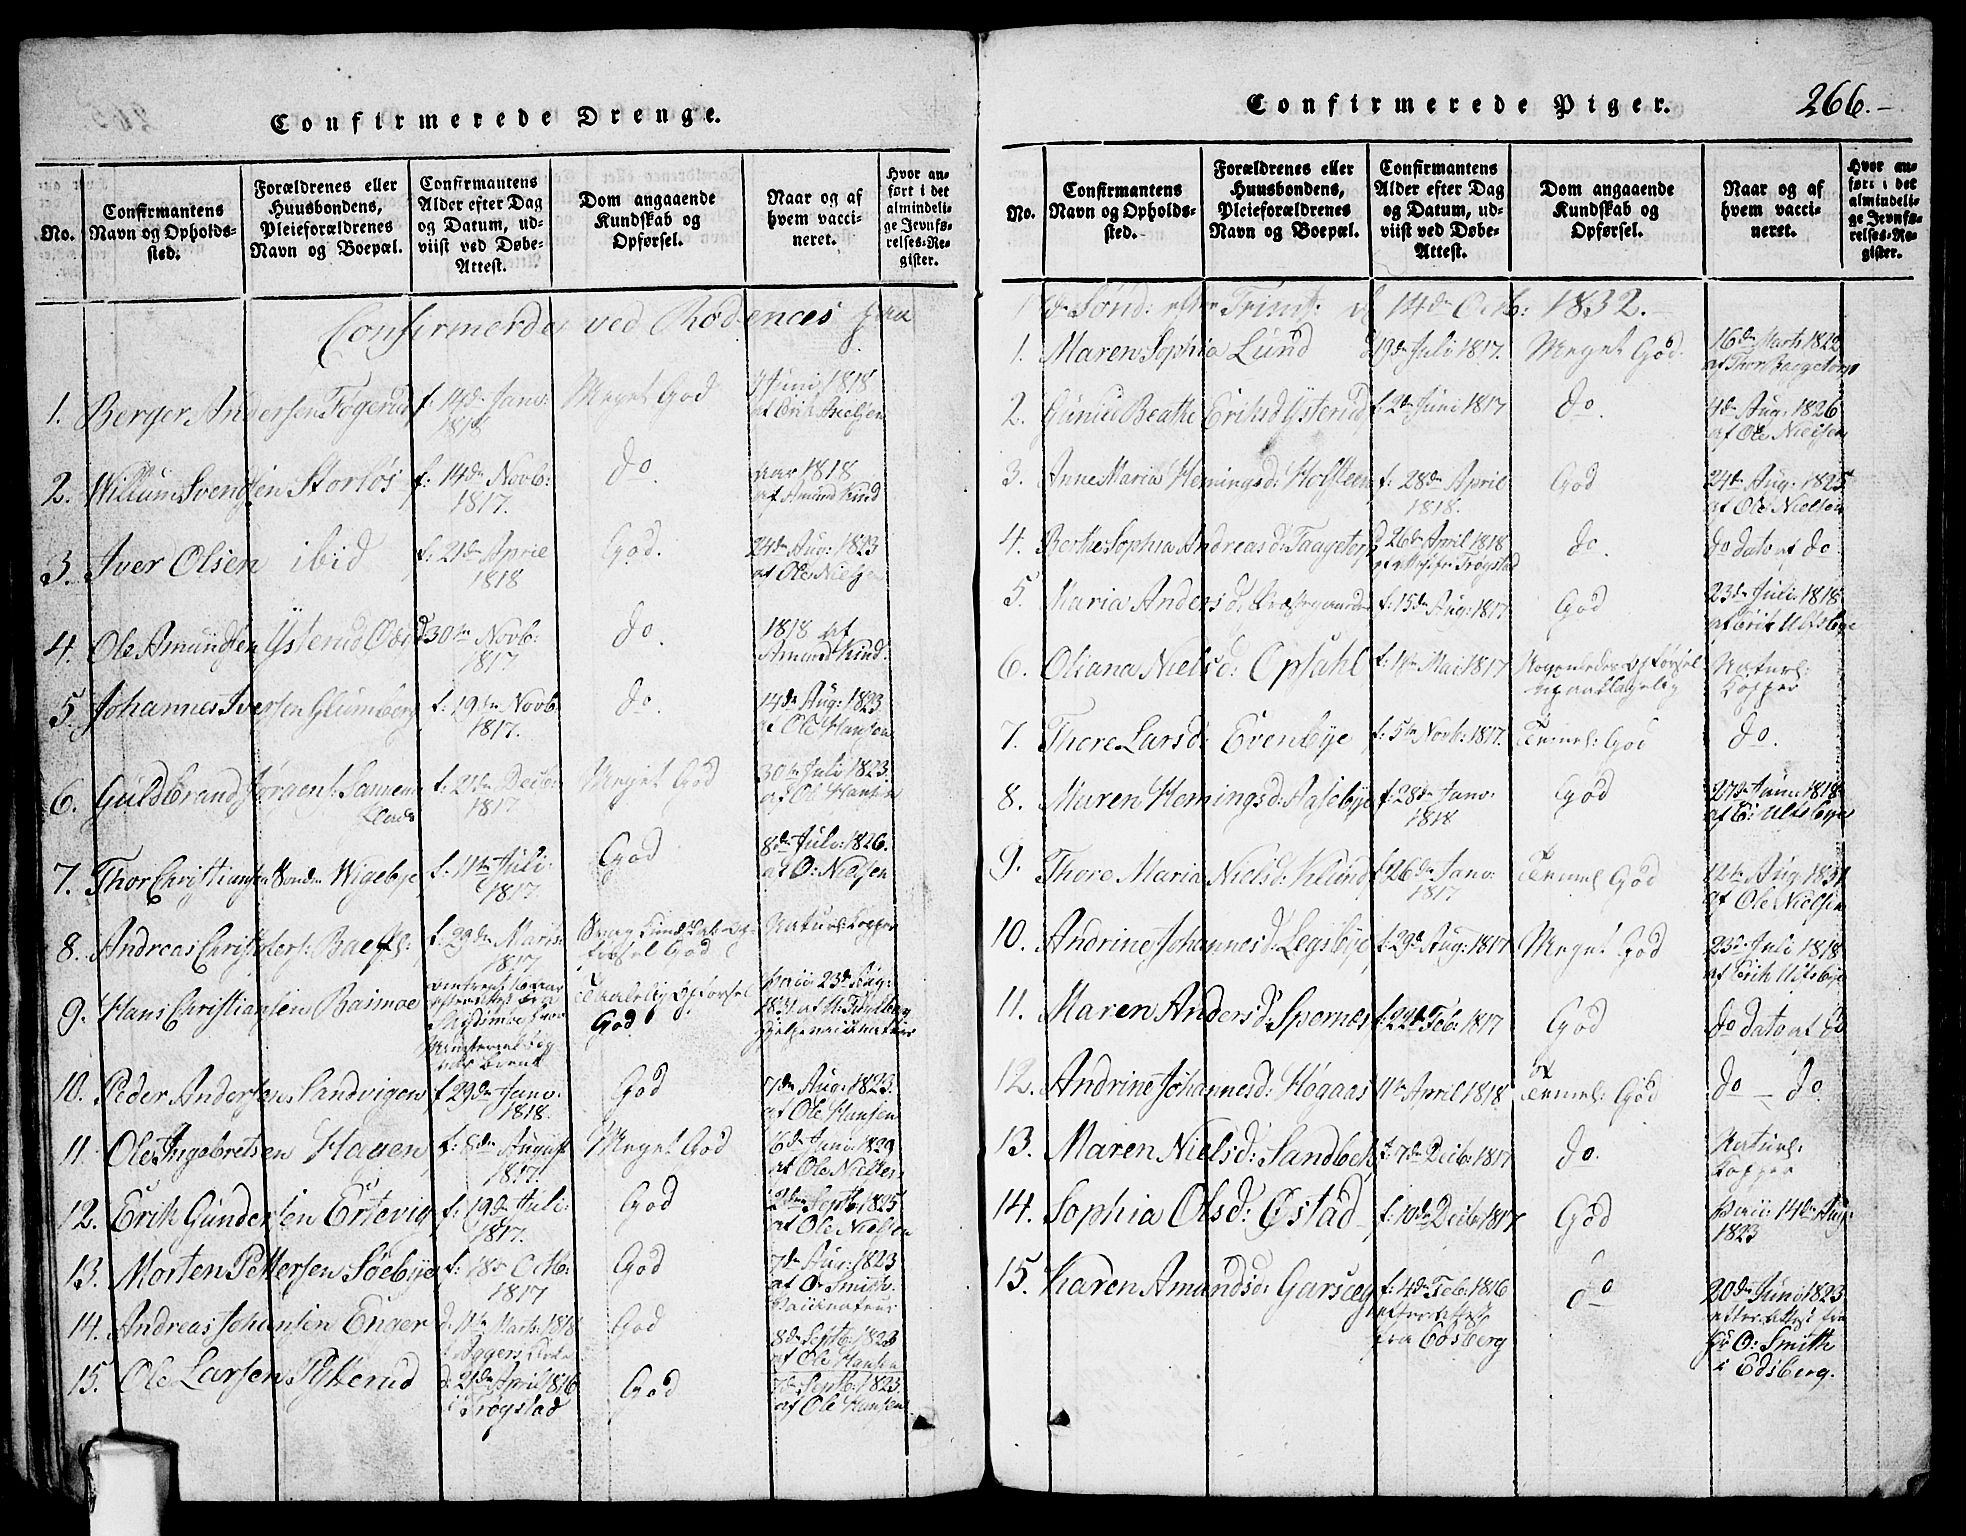 Confirmerede Drenge.
No.
Confirmantens
Navn og Opholds-
sted.
Forældrenes eller
Huusbondens,
Pleieforældrenes
Navn og Boepæl.
Confirmantens
Alder efter Dag
og Datum, ud-
viist ved Døbe-
Attest.
Dom angaaende
Kundskab og
Opførsel.
Naar og af
hvem vacci-
neret.
Hvor an-
ført i det
almindeli-
ge Jevnfø-
relses-Re-
gister.
Confirmerede ved Rodences paa
1. Berger Andersen Fogerud f. 14de Jano: Meget God 9 Juni 1818
1818 af Erik Nielsen
2. Willum Svendsen Storløs f. 14de Novb: do. aar 1818
1817. af Amund Kind
3. Iver Olsen ibid f. 21de April God. 24de Aug: 1823
1818 af Ole Nielsen
4. Ole Amundsen Ysterud 30te Novb: do. 1818 af
1817 Amund Kind.
5. Johannes Iversen Glumberg f. 19de Novb: do. 14de Aug: 1823
1817. af Ole Hansen
6. Guldbrand Jørgens: Sannem f. 21de Decb: Meget God 30te Juli 1823.
1817. af Ole Hansen
7. Thor Christiansen Wigebye f. 11te Juli God 8de Julv: 1826.
1817. af O: Nielsen
8. Andreas Christophers: f. 29de Marts Svag Kundskab Op- Naturl: Kopper
1817 førsel God
9. Hans Christiansen Basmoe Taalelig Opførsel 23de Aug:
God 1831 af
10. Peder Andersen Sandvigen f 29de Jano: God 7de Aug: 1823.
1818. af Ole Hansen
11. Ole Ingebretsen Hagen f. 8de August Meget God 6de Juni 1829
1817. af Ole Nielsen
12. Erik Gundersen Ertevig f. 19de Juli: God 2den Septb: 1825
1817. af Ole Nielsen
13. Morten Pettersen Søebye f. 18de Octb: God 7de Aug: 1823
1817 af O: Smith.
Vaccinateur
14. Andreas Johansen Enger d. 11te Marts 1818 God 8de Septb: 1823
i Aggers af Ole Hansen
15. Ole Larsen d. 21de April 1816 God 7de Septb: 1823
i Trøgstad af Ole Hansen
Confirmerede Piger. 266.
No.
Confirmantens
Navn og Opholds-
sted.
Forældrenes eller
Huusbondens,
Pleieforældrenes
Navn og Boepæl.
Confirmantens
Alder efter Dag
og Datum, ud-
viist ved Døbe-
Attest.
Dom angaaende
Kundskab og
Opførsel.
Naar og af
hvem vacci-
neret.
Hvor an-
ført i det
almindeli-
ge Jevnfø-
relses-Re-
gister.
Sønd: efter Trinit: d 14de Octb: 1832.
1. Maren Sophia Lund 19de Juli 1817. Meget God. 16de Marts 1822
af Thor
2. Gunild Beathe Eriksd Ysterud f. 2de Juni 1817 do. 4de Aug: 1826
af Ole Nielsen
3. Anne Maria Hemingsd: Holsteen f. 28de April God 24de Aug: 1825
1818. af Ole Nielsen
4. Berthe Sophia Andreasd: Taagetorp 26de April 1818 do. do dato af do
Trøgstad
5. Maria Andersd. Præstegaarden f. 15de Aug: 1817 God 23de Juli 1818
af Erik Utsbye
6. Oliana Nielsd: Opsahl f. 1ste Mai 1817 Opførsel Naturl:
upaaklagelig Kopper
7. Thore Larsd: Evenbye f. 5te Novb: 1817. Temel: God do.
8. Maren Hemingsd: Aasebye f. 28de Jano: God 27de Juni 1818
1818 af E: Utsbye
9. Thore Maria Nielsd: Klund f. 26de Jano: Temel God 12te Aug: 1831
1817 af Ole Nielsen
10. Andrine Johannesd: Legsbye f. 29de Aug: 1817 Meget God 23de Juli 1818
af Erik Utsbye
11. Maren Andersd: Spernes f. 22de Feb: 1817 God do dato af do
12. Andrine Johannesd: Høgaas 11te April 1818 Temel: God do – do
13. Maren Nielsd: Sandbek f. 7de Decb: 1817 do. Naturl:
Kopper
14. Sophia Olsd: Østad f. 10de Decb: 1817 God 14de Aug:
1823
15. Karen Amundsd: Garseg f. 4de Feb: 1816 do 20de Juni 1823
efter Attest efter Attest fra
fra Edsberg O: Smith
i Edsberg.